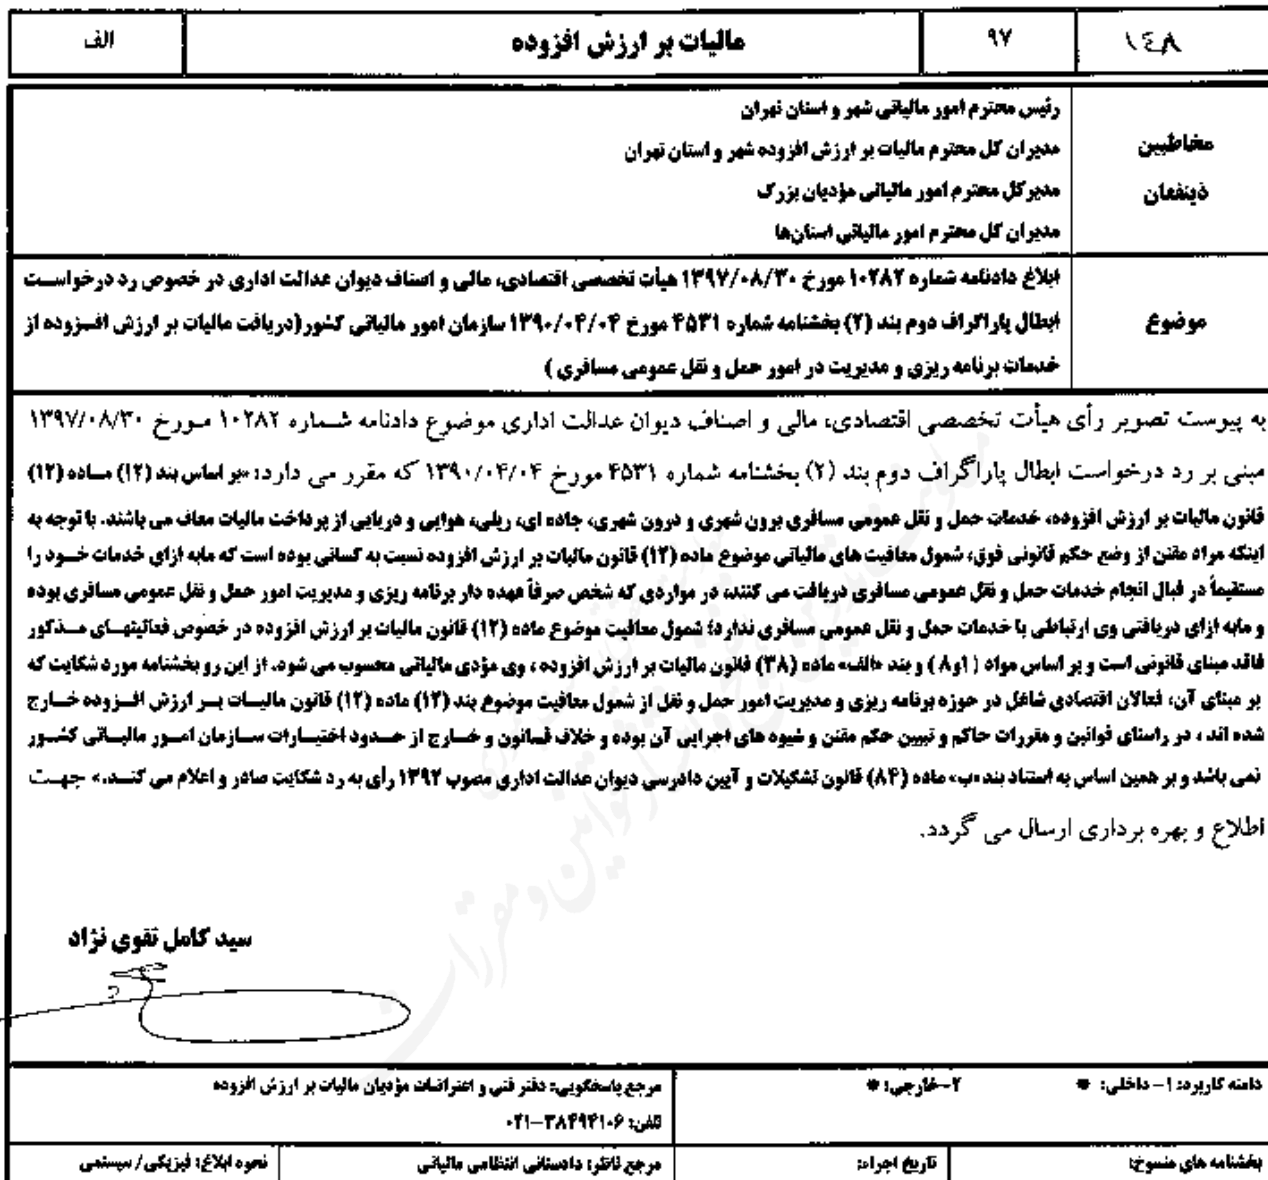 ۸۴۱
۹۷
مالیات بر ارزش افزوده
الف
مخاطبین
ذینفعان
رئیس محترم امور مالیاتی شهر و استان تهران
مدیران کل محترم مالیات بر ارزش افزوده شهر و استان تهران
مدیرکل محترم امور مالیاتی مؤدیان بزرگ
مدیران کل محترم امور مالیاتی استان‌ها
موضوع
ابلاغ دادنامه شماره ۱۰۲۸۲ مورخ ۱۳۹۷/۰۸/۳۰ هیأت تخصصی اقتصادی، مالی و اصناف دیوان عدالت اداری در خصوص رد درخواست
ابطال پاراگراف دوم بند (۲) بخشنامه شماره ۴۵۳۱ مورخ ۱۳۹۰/۰۴/۰۴ سازمان امور مالیاتی کشور(دریافت مالیات بر ارزش افزوده از
خدمات برنامه ریزی و مدیریت در امور حمل و نقل عمومی مسافری )
به پیوست تصویر رأی هیأت تخصصی اقتصادی، مالی و اصناف دیوان عدالت اداری موضوع دادنامه شماره ۱۰۲۸۲ مورخ ۱۳۹۷/۰۸/۳۰
مبنی بر رد درخواست ابطال پاراگراف دوم بند (۲) بخشنامه شماره ۴۵۳۱ مورخ ۱۳۹۰/۰۴/۰۴ که مقرر می دارد: «بر اساس بند (۱۲) ماده (۱۲)
قانون مالیات بر ارزش افزوده، خدمات حمل و نقل عمومی مسافری برون شهری و درون شهری، جاده ای، ریلی، هوایی و دریایی از پرداخت مالیات معاف می باشند. با توجه به
اینکه مراد مقنن از وضع حکم قانونی فوق، شمول معافیت های مالیاتی موضوع ماده (۱۲) قانون مالیات بر ارزش افزوده نسبت به کسانی بوده است که مابه ازای خدمات خود را
مستقیماً در قبال انجام خدمات حمل و نقل عمومی مسافری دریافت می کنند، در مواردی که شخص صرفاً عهده دار برنامه ریزی و مدیریت امور حمل و نقل عمومی مسافری بوده
و مابه ازای دریافتی وی ارتباطی با خدمات حمل و نقل عمومی مسافری ندارد؛ شمول معافیت موضوع ماده (۱۲) قانون مالیات بر ارزش افزوده در خصوص فعالیتهای مذکور
فاقد مبنای قانونی است و بر اساس مواد ( ۱و۸ ) و بند «الف» ماده (۳۸) قانون مالیات بر ارزش افزوده ، وی مؤدی مالیاتی محسوب می شود. از این رو بخشنامه مورد شکایت که
بر مبنای آن، فعالان اقتصادی شاغل در حوزه برنامه ریزی و مدیریت امور حمل و نقل از شمول معافیت موضوع بند (۱۲) ماده (۱۲) قانون مالیات بر ارزش افزوده خارج
شده اند ، در راستای قوانین و مقررات حاکم و تبیین حکم مقنن و شیوه های اجرایی آن بوده و خلاف قانون و خارج از حدود اختیارات سازمان امور مالیاتی کشور
نمی باشد و بر همین اساس به استناد بند «ب» ماده (۸۴) قانون تشکیلات و آیین دادرسی دیوان عدالت اداری مصوب ۱۳۹۲ رأی به رد شکایت صادر و اعلام می کند.» جهت
اطلاع و بهره برداری ارسال می گردد.
سید کامل تقوی نژاد
دامنه کاربرد: ۱- داخلی: *
۲-خارجی: *
مرجع پاسخگویی: دفتر فنی و اعتراضات مؤدیان مالیات بر ارزش افزوده
تلفن: ۳۸۴۹۴۱۰۶-۰۲۱
بخشنامه های منسوخ:
تاریخ اجراء:
مرجع ناظر: دادستانی انتظامی مالیاتی
نحوه ابلاغ: فیزیکی/ سیستمی